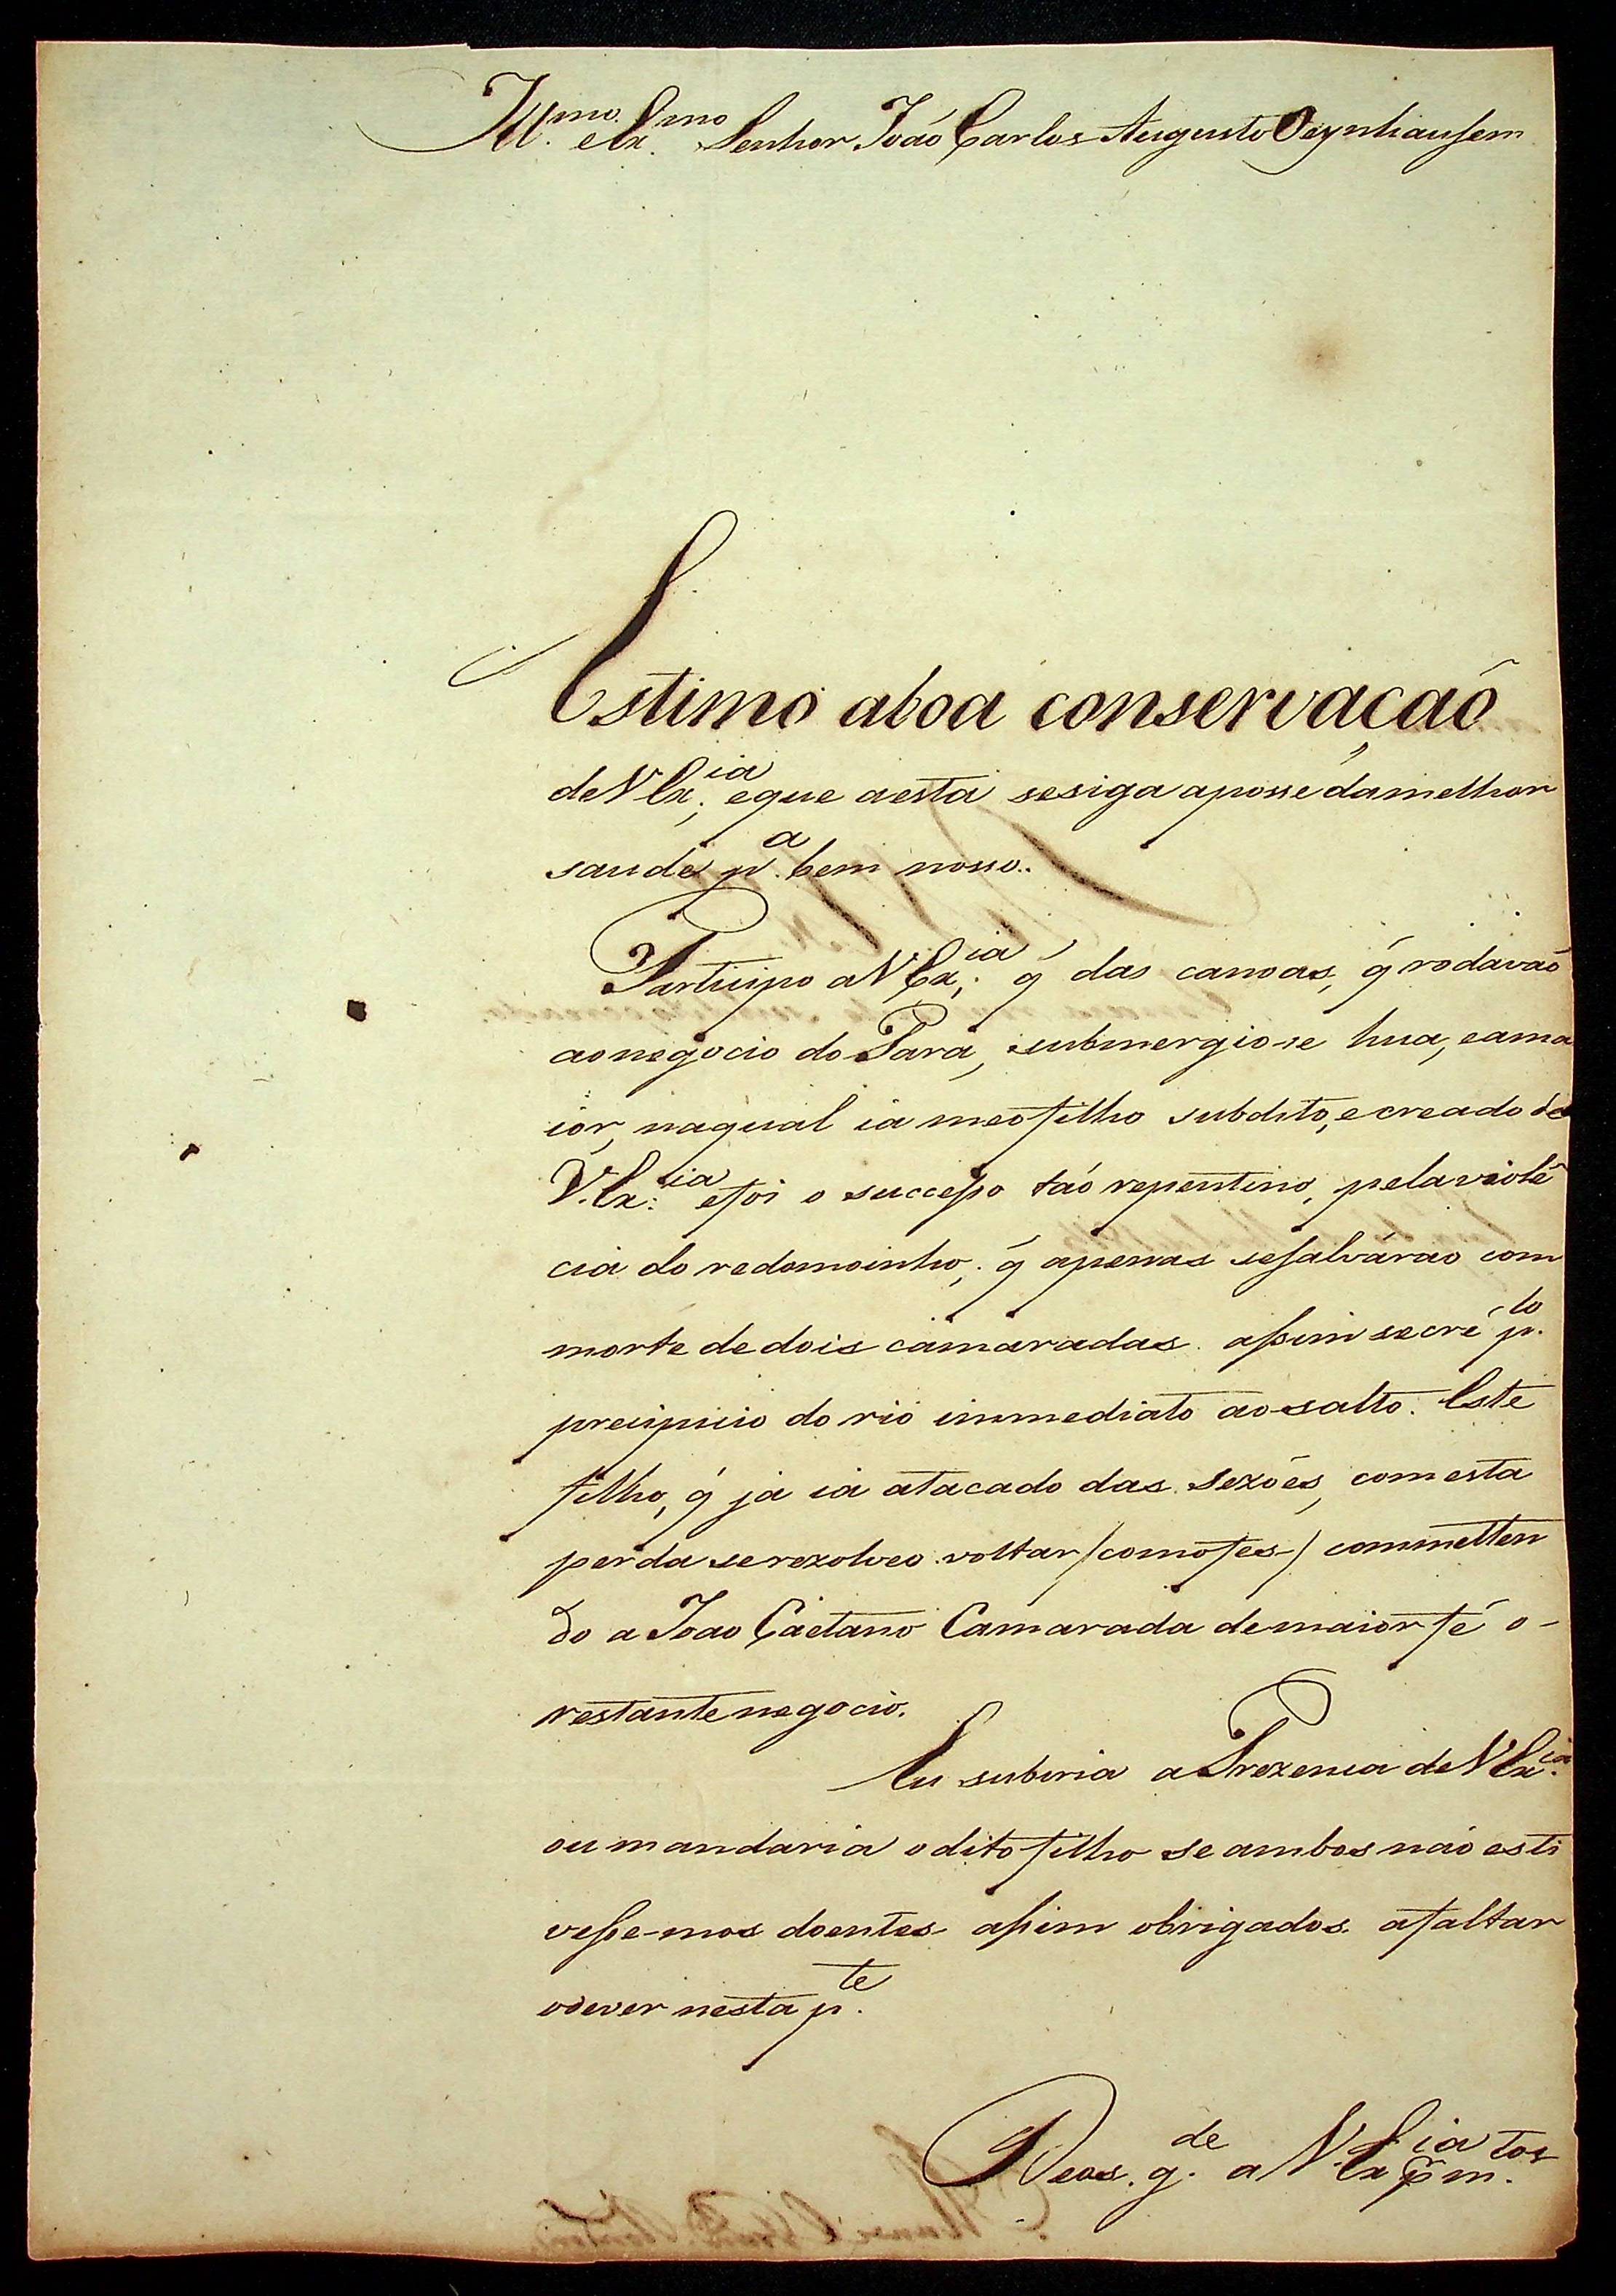 Ill.mo e Ex.mo Senhor João Carlos Augusto Oeynhausem
Estimo aboa conservação
deV Ex.ia, eque aesta sesiga aposse damelhor
saude p.a bem nosso.
Participo aV Ex.ia, q̃ das canoas, q̃ rodavaõ
aonegocio do Pará, submergio-se hua, eama
ior, naqual ia meofilho subdito, ecreado de
V. Ex.ia efoi o successo taõ repentino, pelaviolẽ
cia do redomoinho, q̃ apenas sesalváraõ com
morte de dois camaradas. assim secré p.lo
precipicio do rio immediato ao salto. Este
filho, q̃ já ia atacado das Sezões, comesta
perda serezolveo voltar /comofes-/ committen
do a Joao Caetano Camarada demaiorfé o-
restantenegocio.
Eu subiria aPrezencia deV Ex.ia
ou mandaria oditofilho se ambos naõ esti
vesse-mos doentes assim obrigados afaltar
odever nesta p.te
Deos g.de a V. Ex.ia p.r m.tos